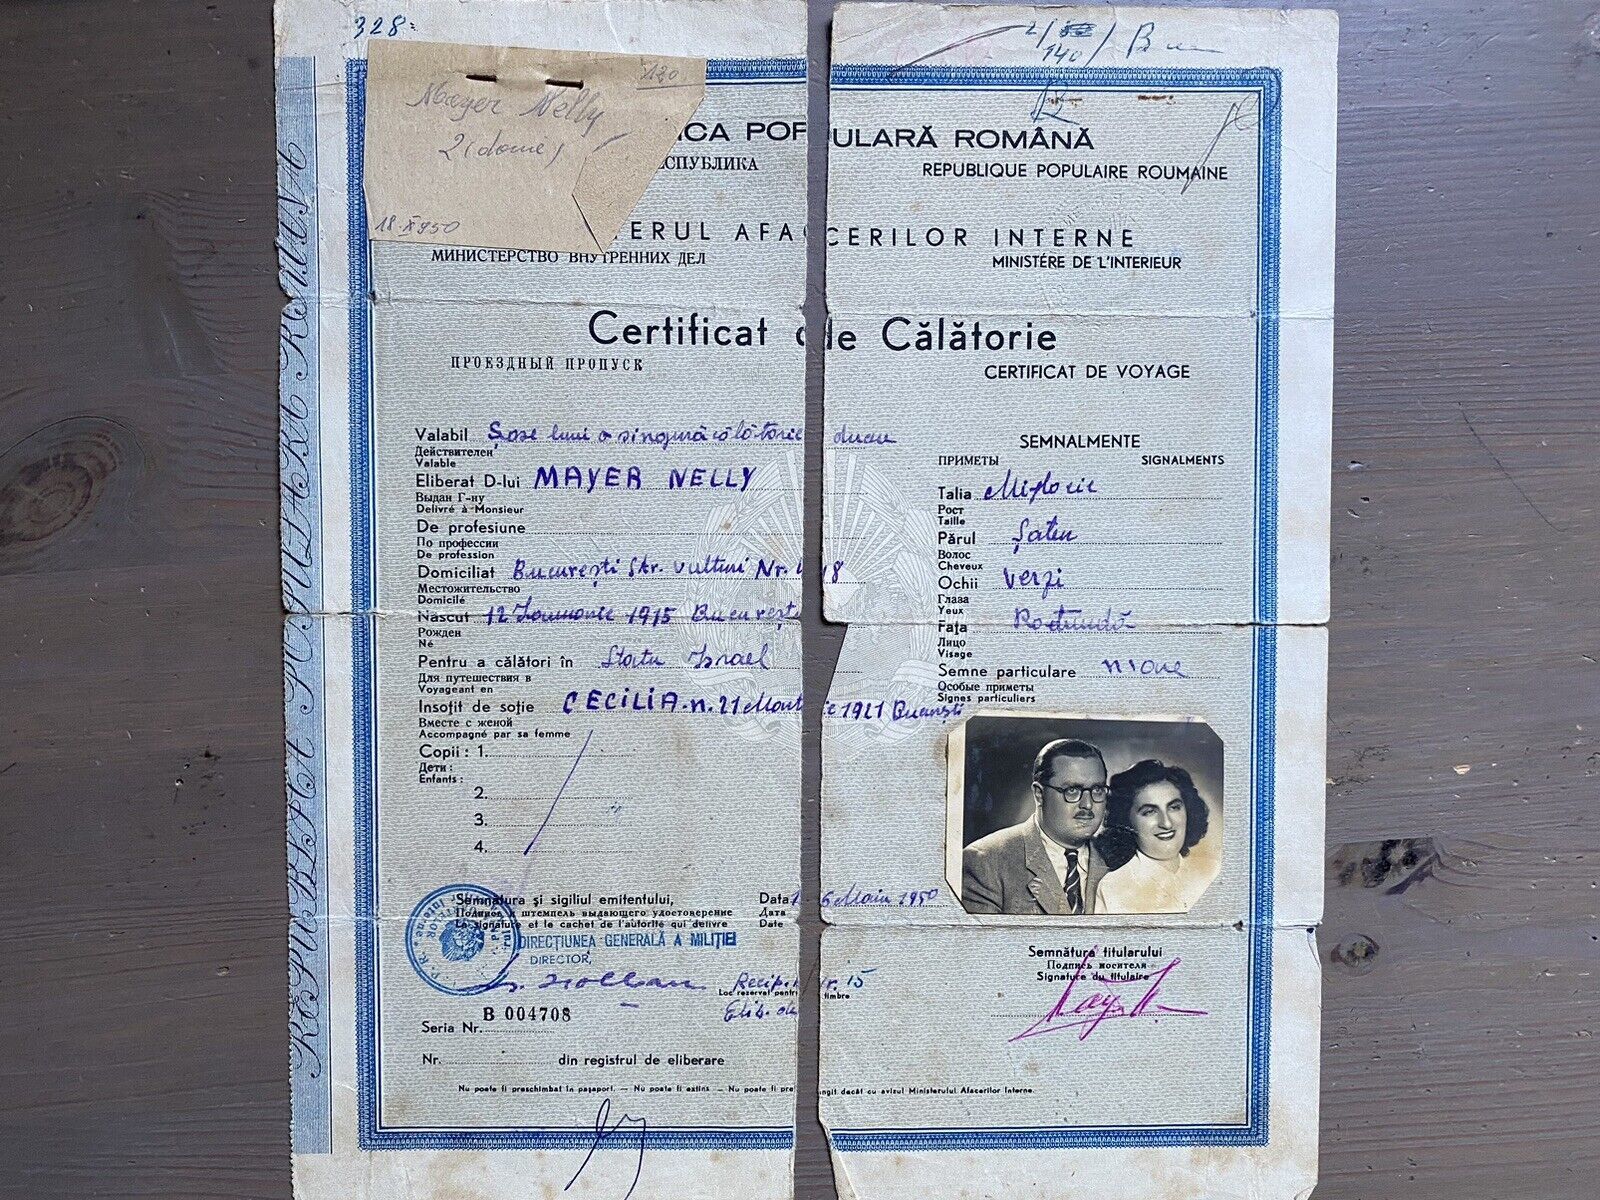 328
140
120
Mayer Nelly
2 (
18.X 950
ICA POPULARĂ ROMÂNĂ
ЕСПУБЛИКА
REPUBLIQUE POPULAIRE ROUMAINE
TERUL AFACERILOR INTERNE
МИНИСТЕРСТВО ВНУТРЕННИХ ДЕЛ
MINISTÉRE DE L'INTERIEUR
Certificat de Călătorie
ПРОЕЗДНЫЙ ПРОПУСК
CERTIFICAT DE VOYAGE
REPUBLICA POPULARA ROMINA
Valabil Șase luni o singură călătorie
Действителен
Valable
Eliberat D-lui MAYER NELLY
Выдан Г-ну
Delivré à Monsieur
De profesiune
По профессии
De profession
Domiciliat București Str. Vulturi Nr. 18
Местожительство
Domicilé
Născut 12 Ianuarie 1915 București
Рожден
Né
Pentru a călători în Statu Israel
Для путешествия в
Voyageant en
Insoțit de soție CECILIA n. 21 Martie 1921 București
Вместе с женой
Accompagné par sa femme
Copii : 1.
Дети :
Enfants :
2.
3.
4.
SEMNALMENTE
ПРИМЕТЫ SIGNALMENTS
Talia Mijlocie
Рост
Taille
Părul Șaten
Волос
Cheveux
Ochii Verzi
Глаза
Yeux
Fața Rotundă
Лицо
Visage
Semne particulare n'are
Особые приметы
Signes particuliers
Semnătura și sigiliul emitentului,
Подпись и штемпель выдающего удостоверение
La signature et le cachet de l'autorité qui delivre
Data 6 Main 1950
Дата
Date
DIRECȚIUNEA GENERALĂ A MILIȚIEI
DIRECTOR,
Recip. Nr. 15
Loc rezervat pentru timbre
Elib. de
B 004708
Seria Nr.
Nr. din registrul de eliberare
Semnătura titularului
Подпись носителя
Signature du titulaire
Nu poate fi preschimbat în pașaport. — Nu poate fi extins. — Nu poate fi prelungit decât cu avizul Ministerului Afacerilor Interne.